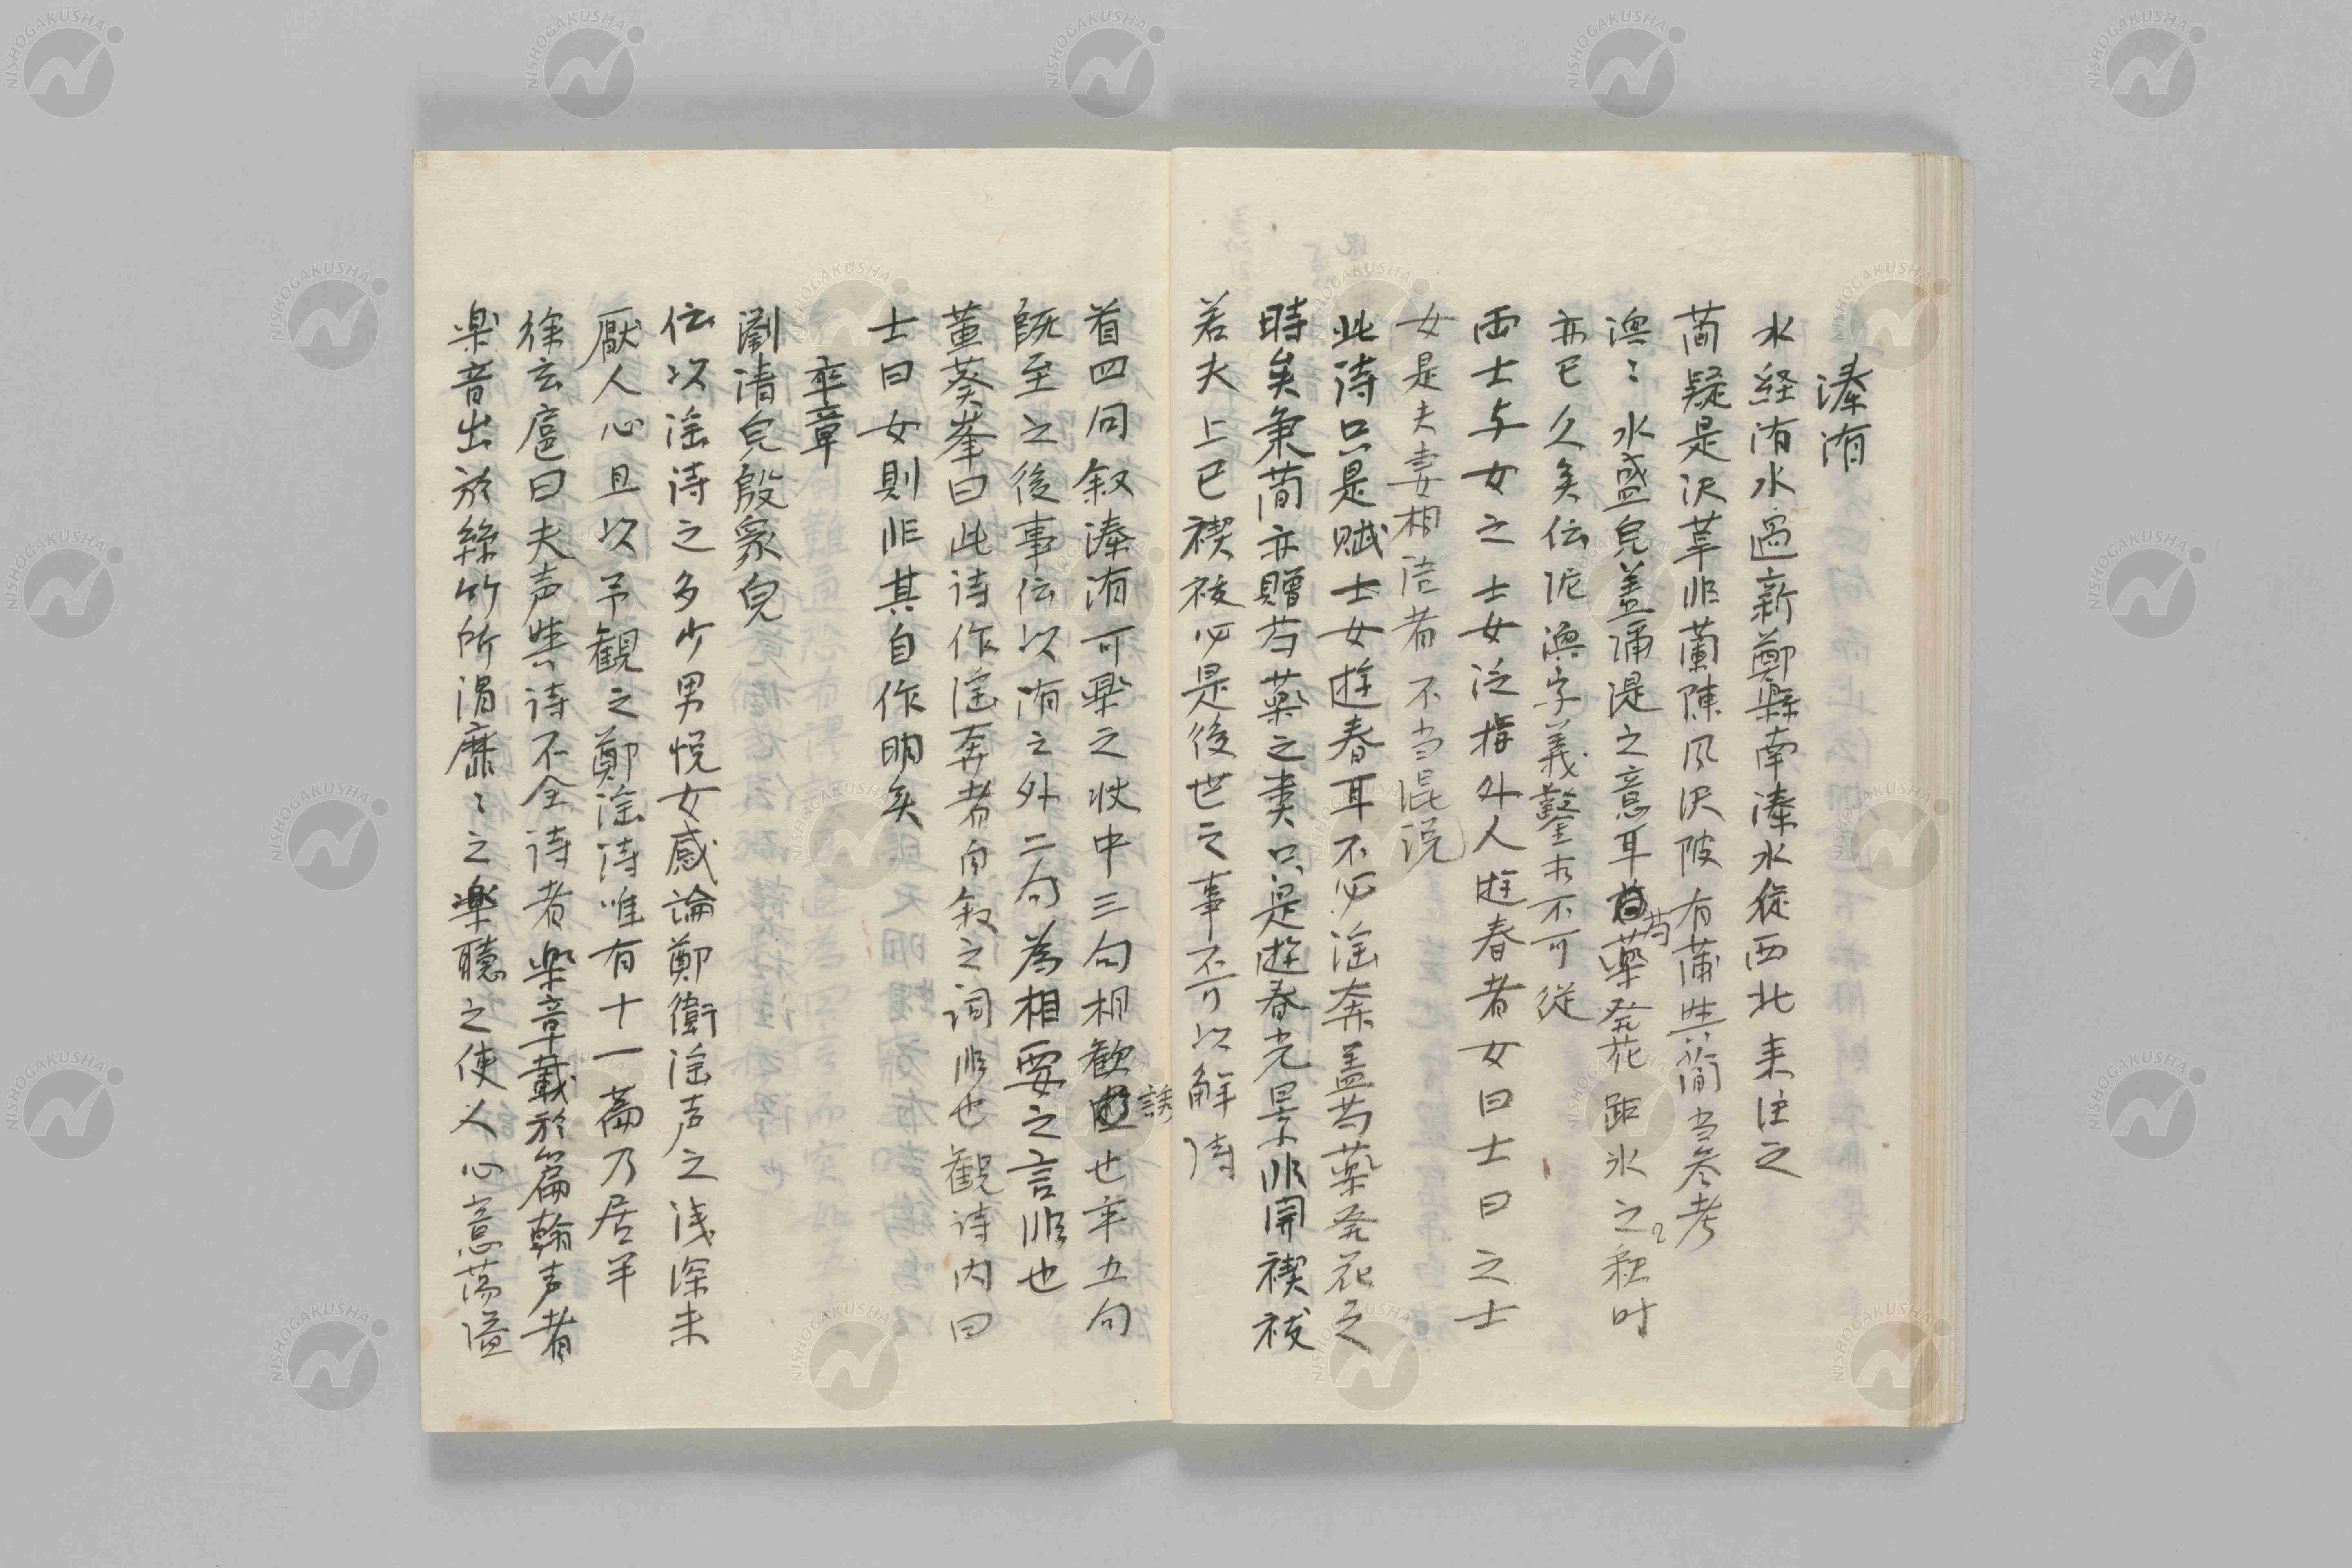 溱洧
水経洧水過新鄭縣南溱水從西北来注之
蕑疑是沢草非蘭陳風沢陂有蒲與蕑当参考
渙〻水盛皃盖彌漫之意耳芍薬発花距氷之釈時
亦已久矣伝泥渙字義鑿求不可從
両士与女之士女泛指外人遊春者女曰士曰之士
女是夫妻相語者不当混説
此詩只是賦士女遊春耳不必淫奔盖芍薬発花之
時矣秉蕑亦贈芍薬之類只是遊春光景非関禊祓
若夫上巳禊祓必是後世之事不可以解詩
首四句叙溱洧可楽之状中三句相歓誘也卒五句
既至之後事伝以洧之外二句為相要之言非也
董葵峯曰此詩作淫奔者自叙之詞非也観詩内曰
士曰女則非其自作明矣
卒章
瀏清皃殷衆皃
伝以淫詩之多少男悦女感論鄭衛淫声之浅深未
厭人心且以予観之鄭淫詩唯有十一篇乃居半
徐玄扈曰夫声與詩不仝詩者楽章載於篇翰声者
楽音出於絲竹所謂靡〻之楽聴之使人心意蕩溢
NISHOGAKUSHA